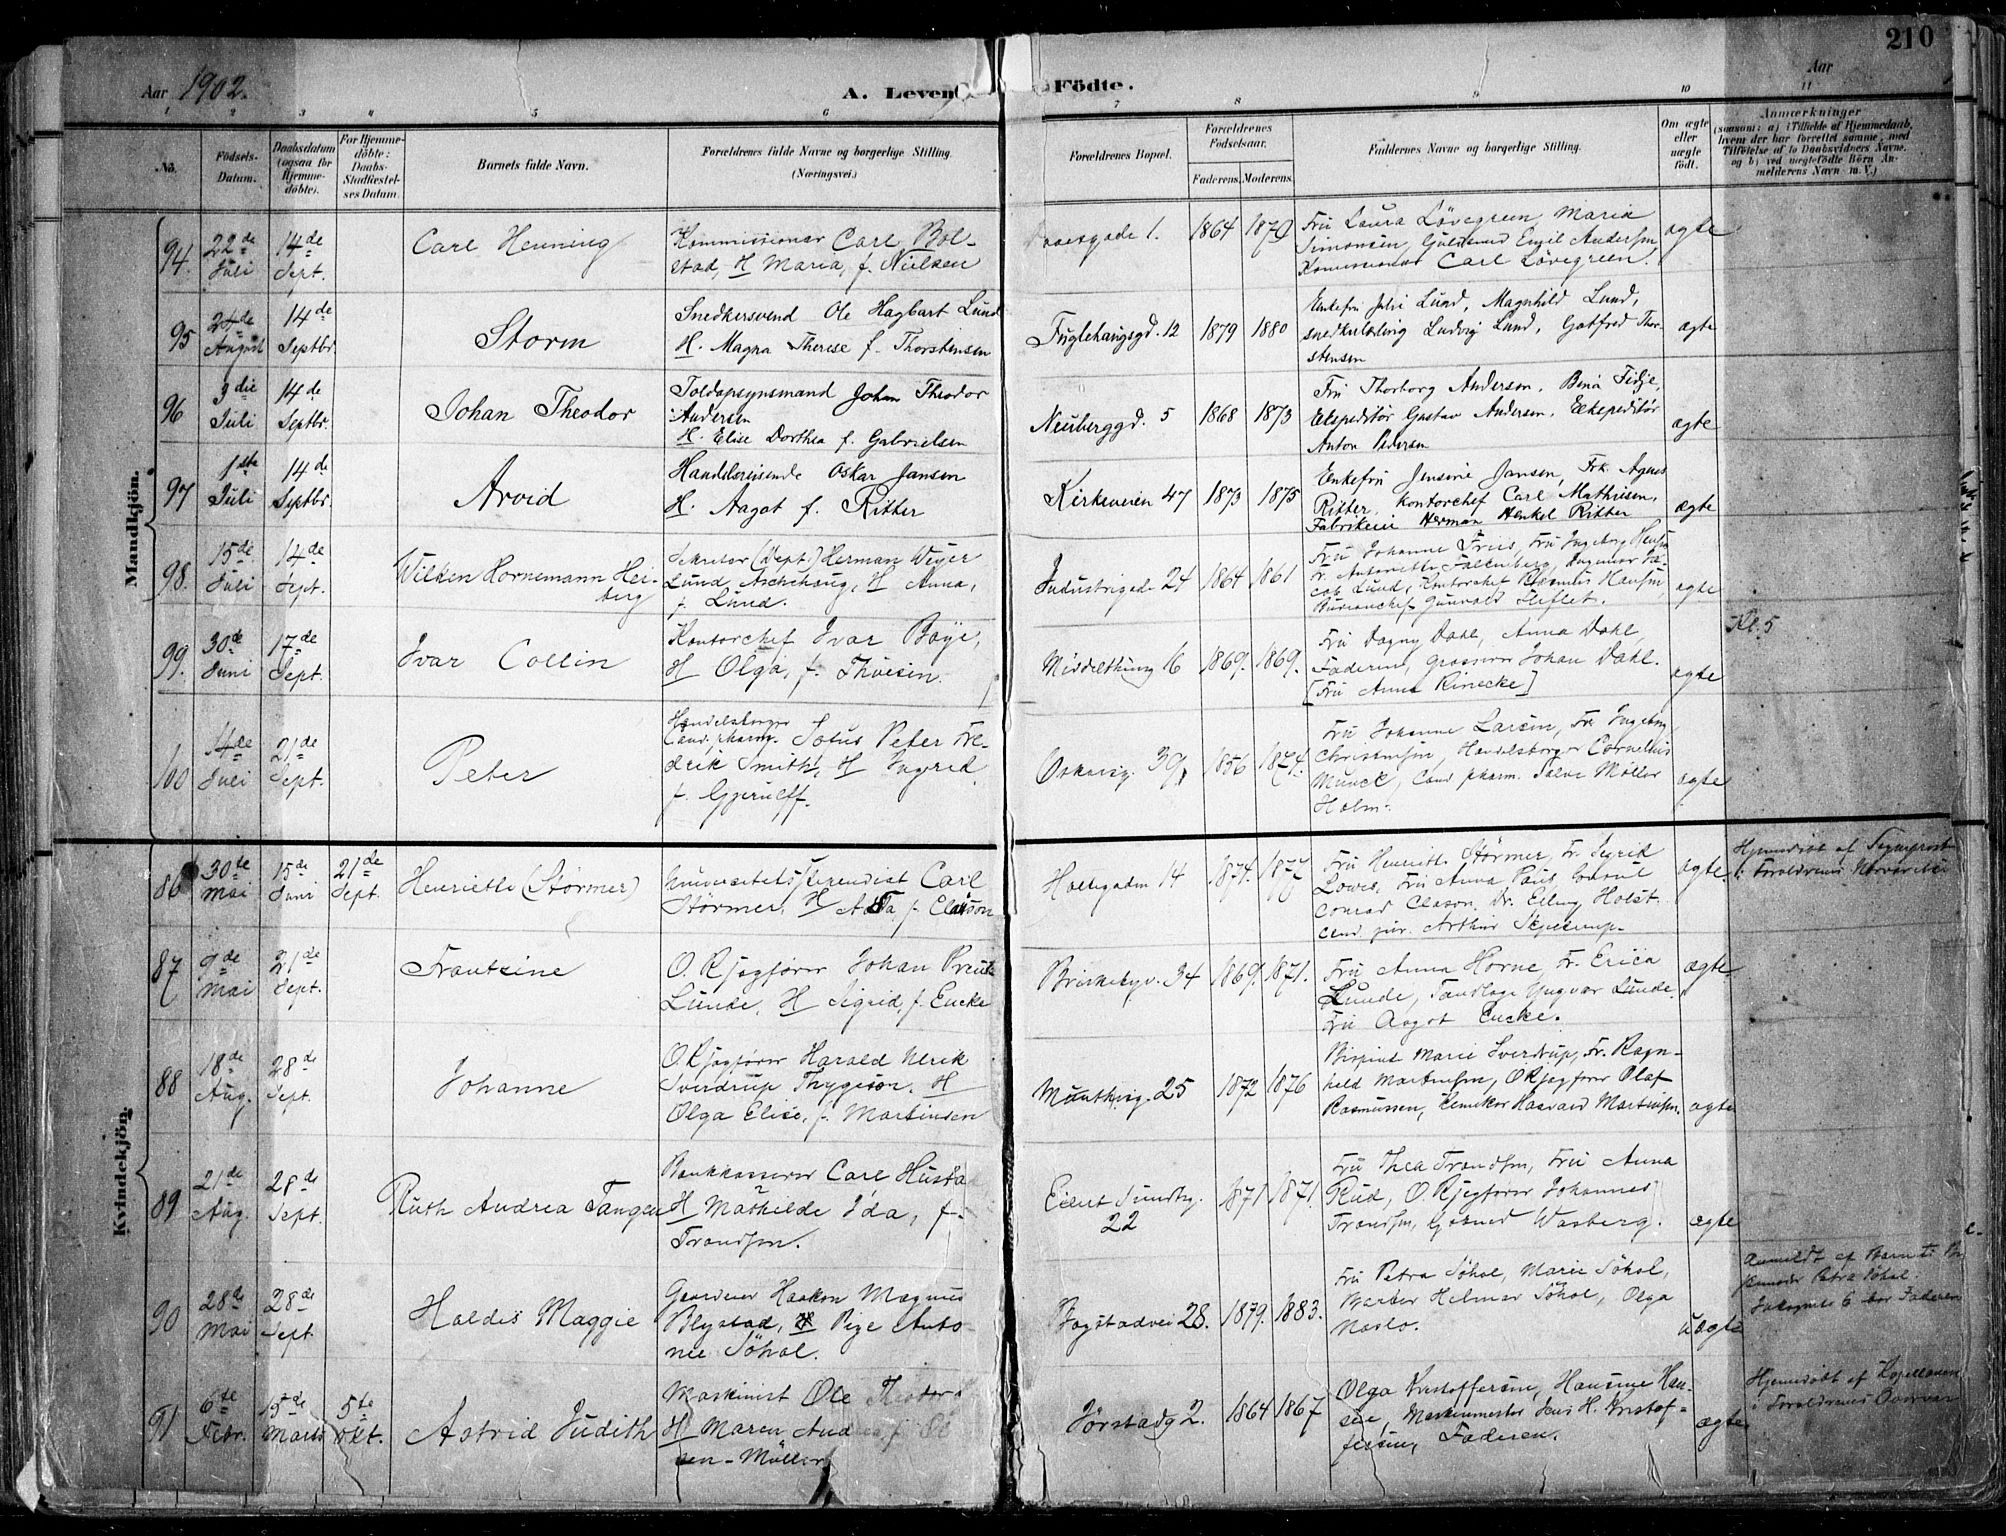 210
Aar 1902. A. Levende Födte. Aar
1 2 3 4 5 6 7 8 9 10 11
No.
Födsels-
Datum.
Daabsdatum
(ogsaa for
Hjemme-
döbte).
For Hjemme-
döbte:
Daabs-
Stadfæstel-
ses Datum.
Barnets fulde Navn.
Forældrenes fulde Navne og borgerlige Stilling.
(Næringsvei.)
Forældrenes Bopæl.
Forældrenes
Födselsaar.
Faderens. Moderens.
Faddernes Navne og borgerlige Stilling.
Om ægte
eller
uægte
födt.
Anmærkninger
(saasom: a) i Tilfælde af Hjemmedaab,
hvem der har forrettet samme, med
Tilföielse af to Daabsvidners Navne,
og b) ved uægtefödte Börn An-
melderens Navn m. V.)
Mandkjön.
94. 22de Juli 14de Sept. Carl Henning
Kommissionær Carl Bol-
stad, H Maria, f. Nielsen
Daaesgade 1. 1864 1870
Fru Laura Lövegreen, Maria
Simonsen, Guldsmed Emil Andersen,
Kommissionær Carl Lövegreen.
ægte
95 August 14de Septbr. Storm
Snedkersvend Ole Hagbart Lund
H. Magna Therese f. Thorstensen
Fuglehaugsgd. 12 1879 1880
Enkefru Julie Lund, Magnhild Lund,
Ludvig Lund, Gotfred Thor-
stensen
ægte
96 3die Juli 14de Septbr. Johan Theodor
Toldopsynsmand Johan Theodor
Andersen
H. Elise Dorthea f. Gabrielsen
Neuberggd. 5 1868 1873
Fru Thorborg Andersen, Bina Fidje,
Ekspeditör Gustav Andersen, Ekspeditör
Anton Pedersen
ægte
97 1ste Juli 14de Septbr. Arvid
Handelsreisende Oskar Jansen
H. Aagot f. Ritter
Kirkeveien 47 1873 1875
Enkefru Jensine Jansen, Frk. Agnes
Ritter, Kontorchef Carl Mathisen,
Fabrikeier Herman Henkel Ritter
ægte
98. 15de Juli 14de Sept. Wilken Hornemann Hei-
berg
Sekretær (Dept.) Herman Weyer
Lund, Aschehoug, H Anna,
f. Lund.
Industrigade 24 1864 1861
Fru Johanne Friis, Fru Ingeborg
Fr. Antonette Falkenberg, Ingeniør Ja-
cob Lund, Kontorchef Rasmus Hansen,
Bureauchef Gunvald
ægte
99. 30de Juni 17de Sept. Ivar Collin
Kontorchef Ivar Böye,
H Olga, f. Thuesen.
Middelthunsg 16 1869. 1869.
Fru Dagny Dahl, Anna Dahl,
Faderen, Grosserer Johan Dahl.
[Fru Anna Rinecke]
ægte
Kl. 5
100 14de Juli 21de Sept. Peter
Handelsborger
Cand. pharm. Sofus Peter Fre-
drik Smith, H Ingrid
f. Gjerulff.
Oskarsg. 39, 1856 1874.
Fru Johanne Larsen, Frk Ingeborg
Christensen, Handelsborger Cornelius
Munck, Cand pharm. Møller
Holm.
ægte
Kvindekjön.
86 30te Mai 15de Juni 21de Sept. Henriette (Størmer)
Universitetsstipendiat Carl
Størmer, H Ada f. Clauson
Holtegaden 14 1874. 1877
Fru Henriette Størmer, Fr. Sigrid
Lowes, Fru Anna Paus, Consul
Conrad Clason. Dr. Elling Holst
cand. jur. Arthur Skjelderup
ægte.
Hjemmedøbt af Sognepræst
i Forældrenes Nærværelse
87 9de Mai 21de Sept. Frantzine
O.R.sagfører Johan Preuts
Lunde, H Sigrid, f. Encke
Briskebyv. 34 1869. 1871.
Fru Anna Horne, Fr. Erica
Lunde, Tandlæge Yngvar Lunde,
Fru Aagot Encke.
ægte
88 18de Aug. 28de Sept. Johanne
O.R.sagfører Harald Ulrik
Sverdrup Thygeson, H
Olga Elise, f. Martinsen
Munthesg. 25 1872 1876
Bispinde Marie Sverdrup, Fr. Ragn-
hild Martinsen, O.R.sagfører Olaf
Rasmussen, Kemiker Haavard Martinsen.
ægte
89 21de Aug. 28de Sept. Ruth Andrea Tangen
Bankkasserer Carl Hustad
H Mathilde Ida, f.
Trondsen.
Eilert Sundtsg. 22 1871 1871.
Fru Thea Trondsen, Fru Anna
Rud, O.R.sagfører Johannes
Trondsen, Wasberg.
ægte
90 28de Mai 28de Sept. Haldis Maggie
Gaardeier Haakon Magnus
Blystad, Pige Anto-
nie Søhol.
Bogstadvei 28. 1879. 1883.
Fru Petra Søhol, Marie Søhol,
Murer Helmar Søhol, Olga
Noslo.
Uægte
Anmeldt af Barnets
Petra Söhol.
6 bor Faderen
91 6te Febr. 15de Marts 5te Okt. Astrid Judith
Maskinist Ole Theodor
H Maren Andrea, f. Ol
sen-Møller
Jörstadg 2. 1864 1867
Olga Kristoffersen, Hansine Han-
sen, Maskinmester Jens H. Kristof-
fersen, Faderen.
ægte
Hjemmedøbt af Kapellanen
i Forældrenes Nærvær